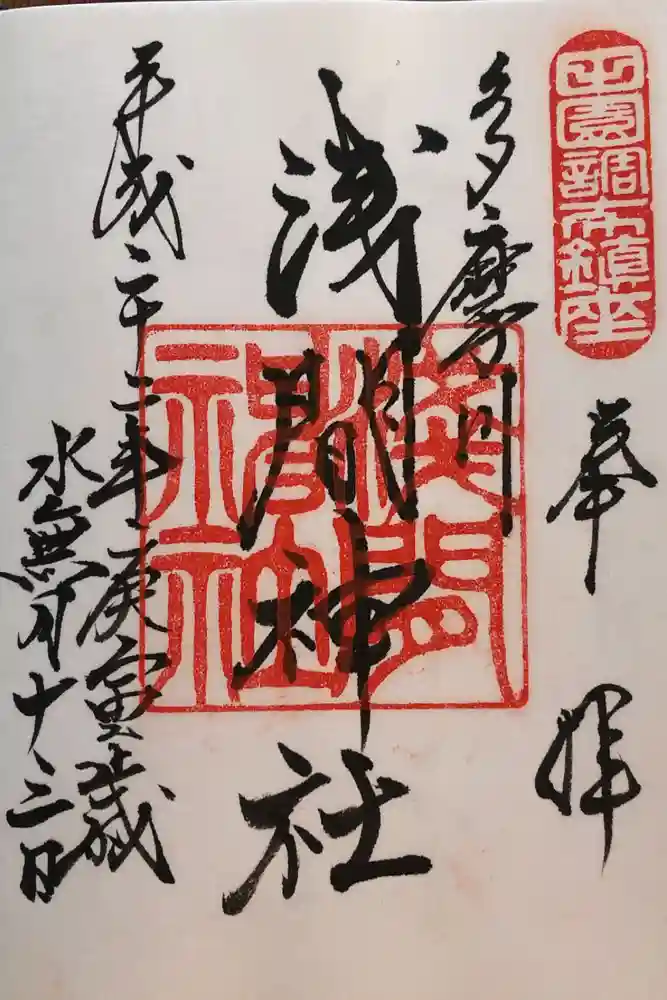 田園調布鎮座
奉拝
多摩川
浅間神社
淺間神社
平成二十二年庚寅歳
水無月十三日